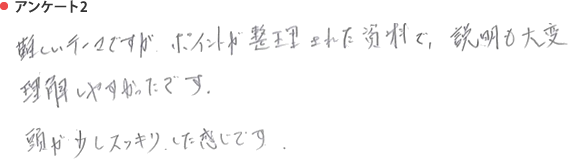 ● アンケート2
難しいテーマですが ポイントが整理された資料で、説明も大変
理解しやすかったです.
頭が少しスッキリした感じです.